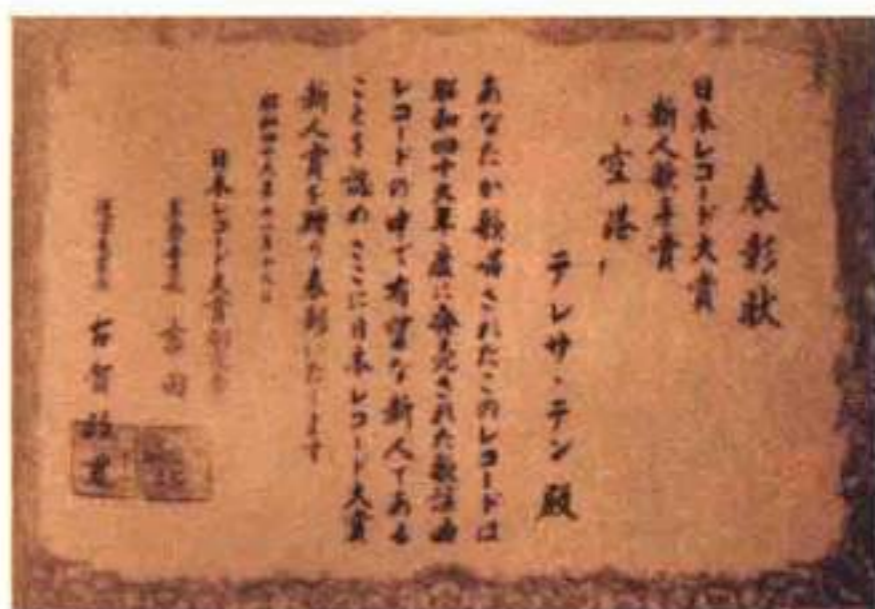 表彰状
日本レコード大賞
新人歌手賞
「空港」
テレサ・テン殿
あなたが歌唱されたこのレコードは
昭和四十九年度に発売された歌謡曲
レコードの中で有望な新人である
ことを認めここに日本レコード大賞
新人賞を贈り表彰いたします
昭和四十九年十
日本レコード大賞
古賀政男